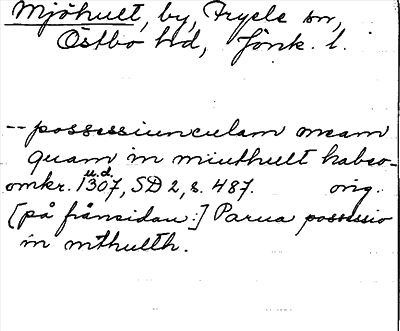 Mjöhult, by, Tryele sn,
Östbo hd, Jönk. l.
-- possessiunculam meam
quam in miuthult habeo-
u.d.
omkr. 1307, SD 2, s. 487. orig.
[på frånsidan:] Parua possessio
in mthulth.